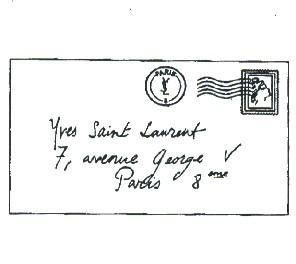 PARIS
YSL
8
Yves Saint Laurent
7, avenue George V
Paris 8 eme